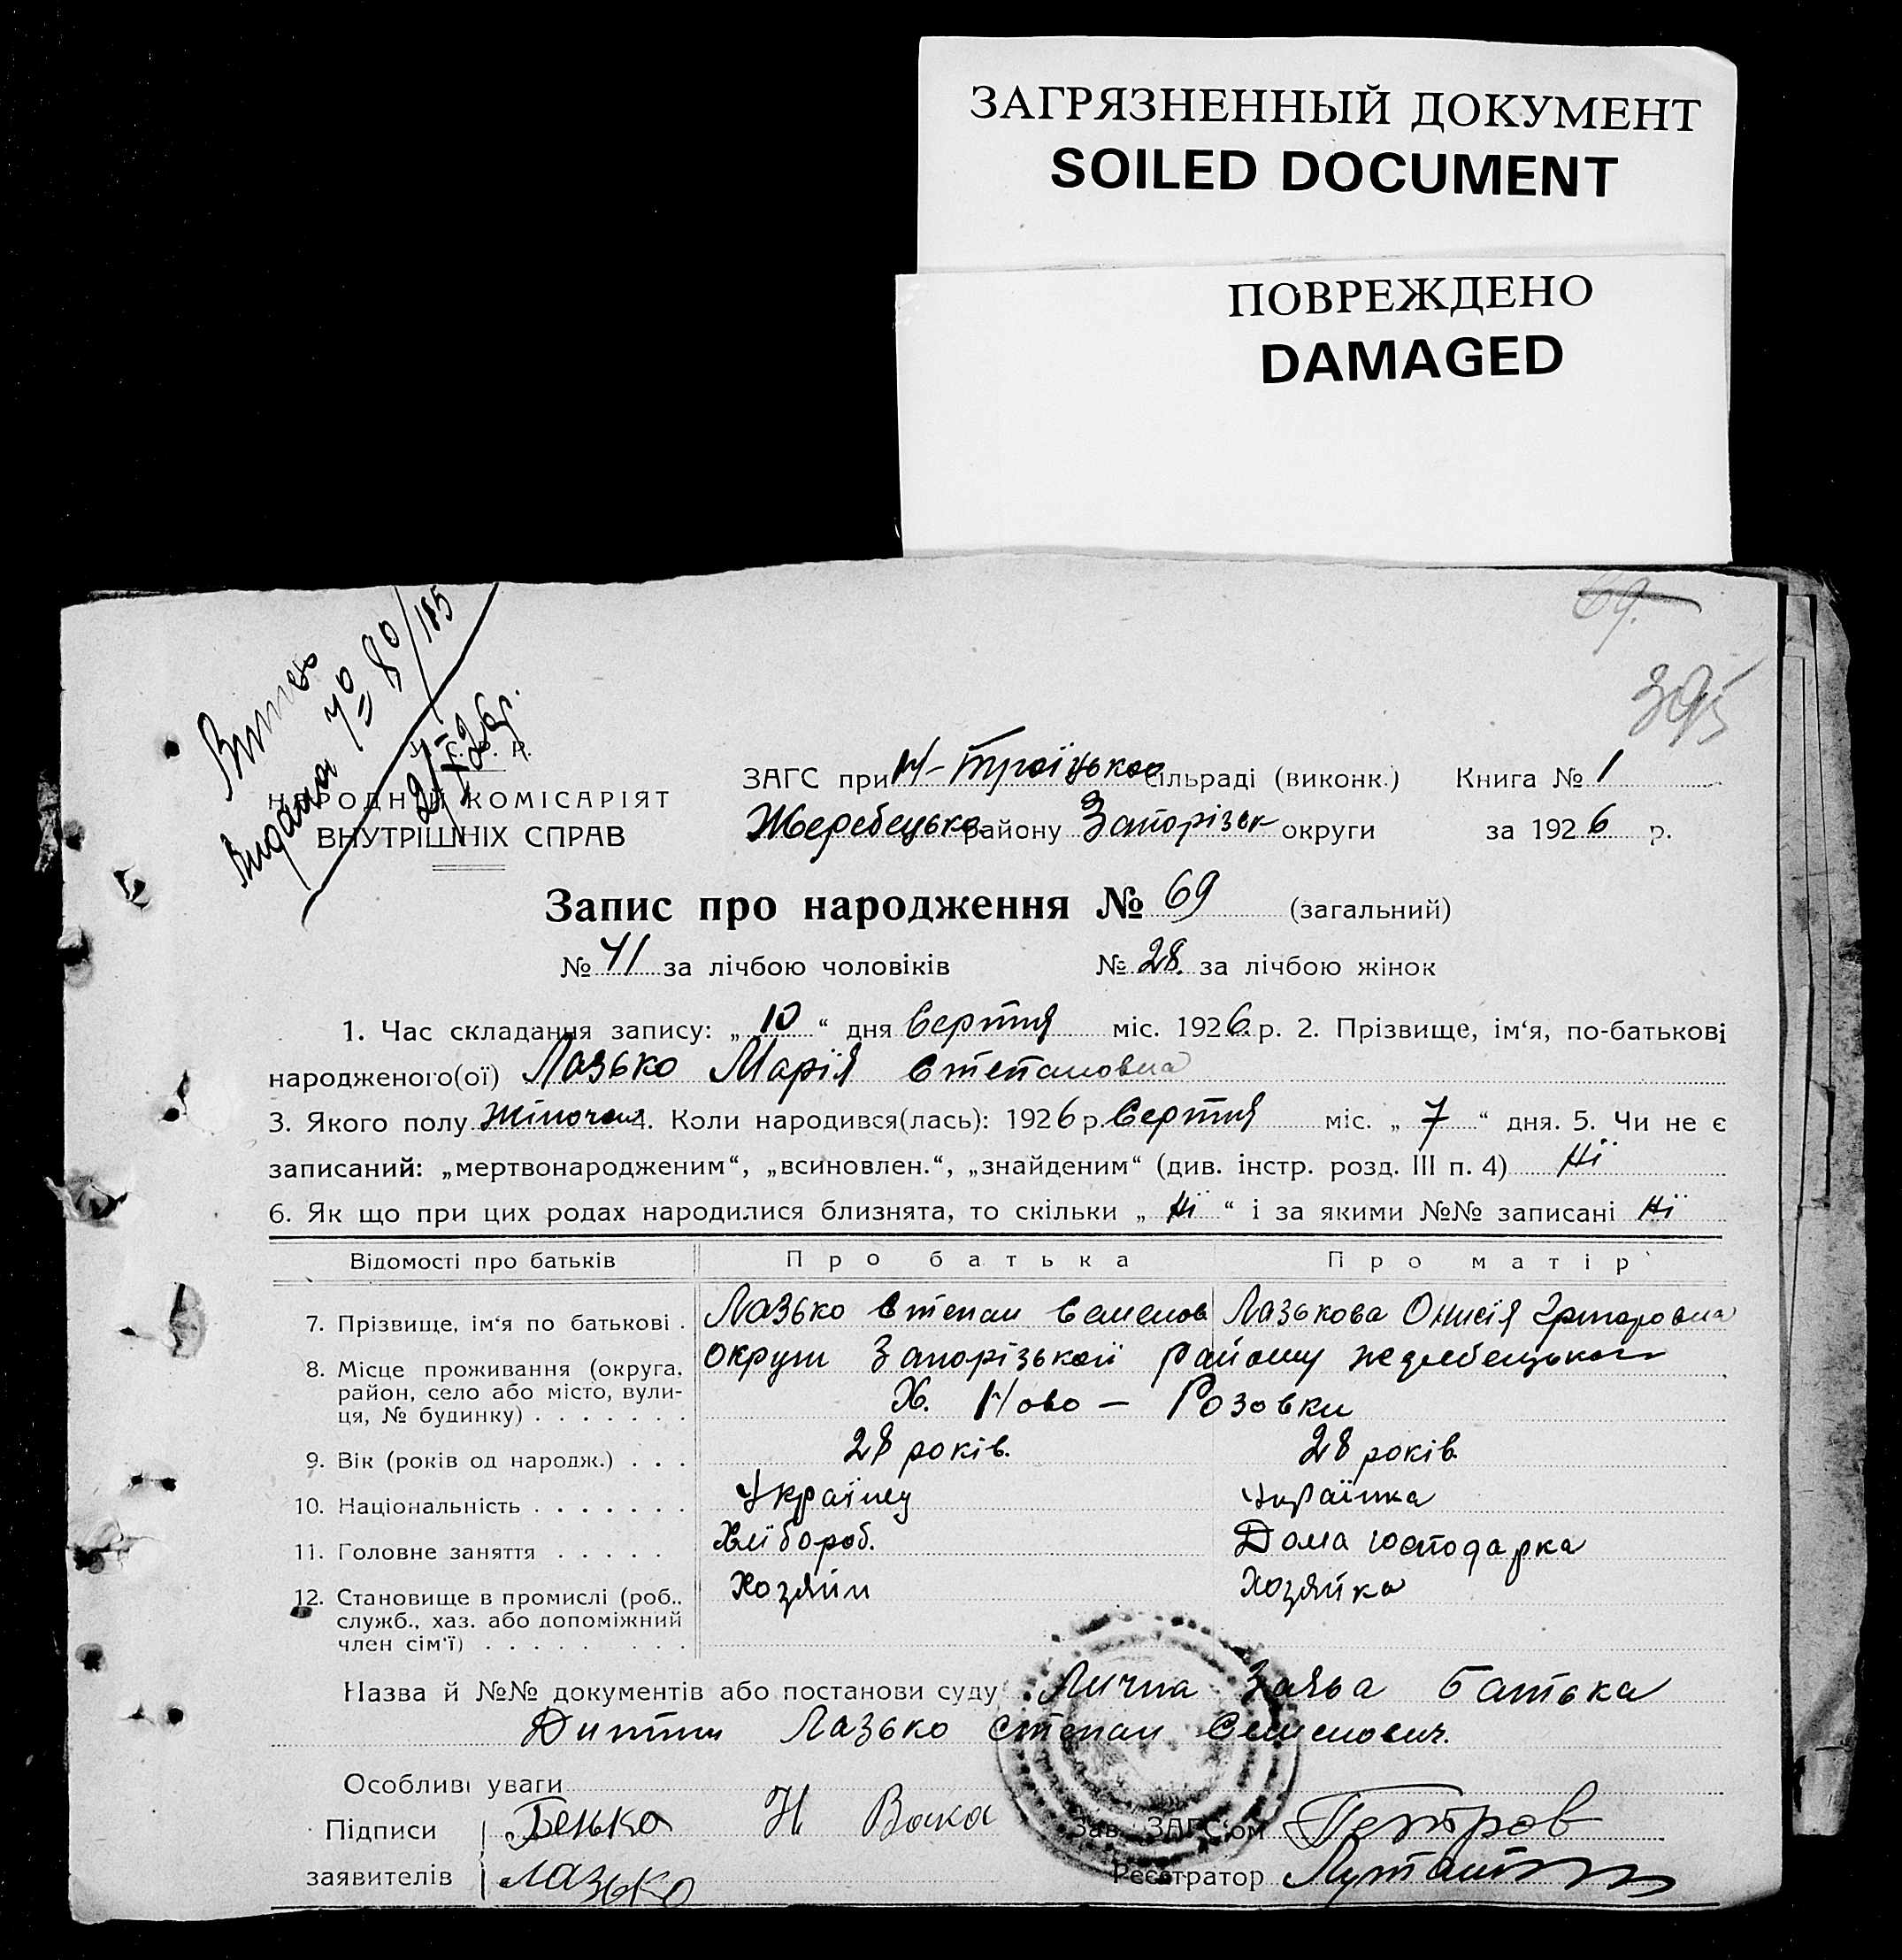 ЗАГРЯЗНЕННЫЙ ДОКУМЕНТ
SOILED DOCUMENT
ПОВРЕЖДЕНО
DAMAGED
69.
395
Витяг
Видана 80/185
У. С. Р. Р.
НАРОДНІЙ КОМІСАРІЯТ
ВНУТРІШНІХ СПРАВ
ЗАГС при Н-Троїцькой сільраді (виконк.) Книга № 1
Жеребецько району Запорізьк округи за 1926 р.
Запис про народження № 69 (загальний)
№ 41 за лічбою чоловіків № 28. за лічбою жінок
1. Час складання запису: „ 10 “ дня Серпня міс. 1926. р. 2. Прізвище, ім‘я, по-батькові
народженого(ої) Лазько Марія Степановна
3. Якого полу Жіночої 4. Коли народився(лась): 1926 р. Серпня міс. „ 7 “ дня. 5. Чи не є
записаний: „мертвонародженим“, „всиновлен.“, „знайденим“ (див. інстр. розд. III п. 4) Ні
6. Як що при цих родах народилися близнята, то скільки „ Ні “ і за якими №№ записані Ні
Відомості про батьків Про батька Про матір
7. Прізвище, ім‘я по батькові . Лазько Степан Семенов Лазькова Онисія
8. Місце проживання (округа, район, село або місто, вулиця, № будинку) . . . . . . . округи Запорізькой району жеребецького
Х. Ново — Розовки
9. Вік (років од народж.) . . . 28 років. 28 років.
10. Національність . . . . . . . Україну Українка
11. Головне заняття . . . . . Хлібороб. Дома господарка
12. Становище в промислі (роб., служб., хаз. або допоміжний член сім‘ї) . . . . . . . . . Хозяїн Хозяйка
Назва й №№ документів або постанови суду Лична Заява Батька
Дитини Лазько Степан Семенович.
Особливі уваги
Підписи Бенька Н Вака Зав. ЗАГС‘ом Петров
заявителів Лазько Реєстратор